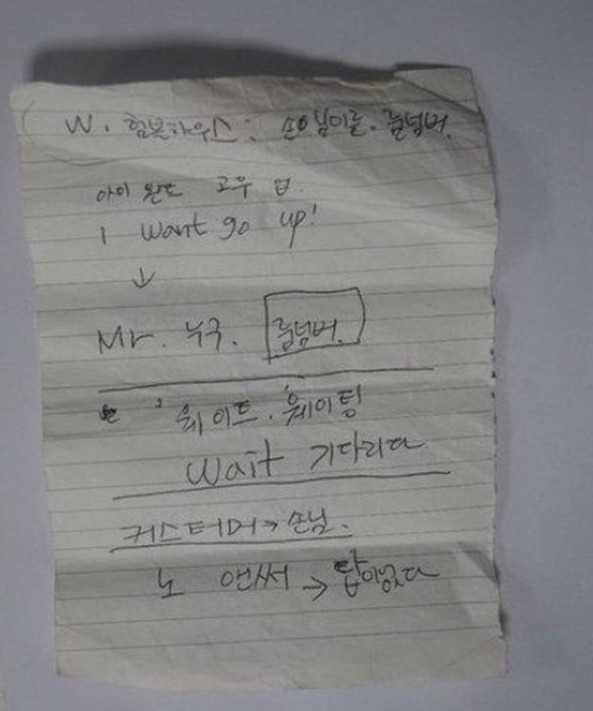 W. 험본하우스: 손님이름. 룸넘버.
아이 원트 고우 업.
I want go up!
↓
Mr. 누구. 룸넘버.
웨이트. 웨이팅
wait 기다리다
커스터머→손님.
노 앤써 → 답이없다